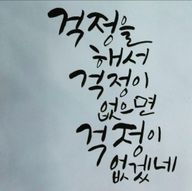 걱정을
해서
걱정이
없으면
걱정이
없겠네